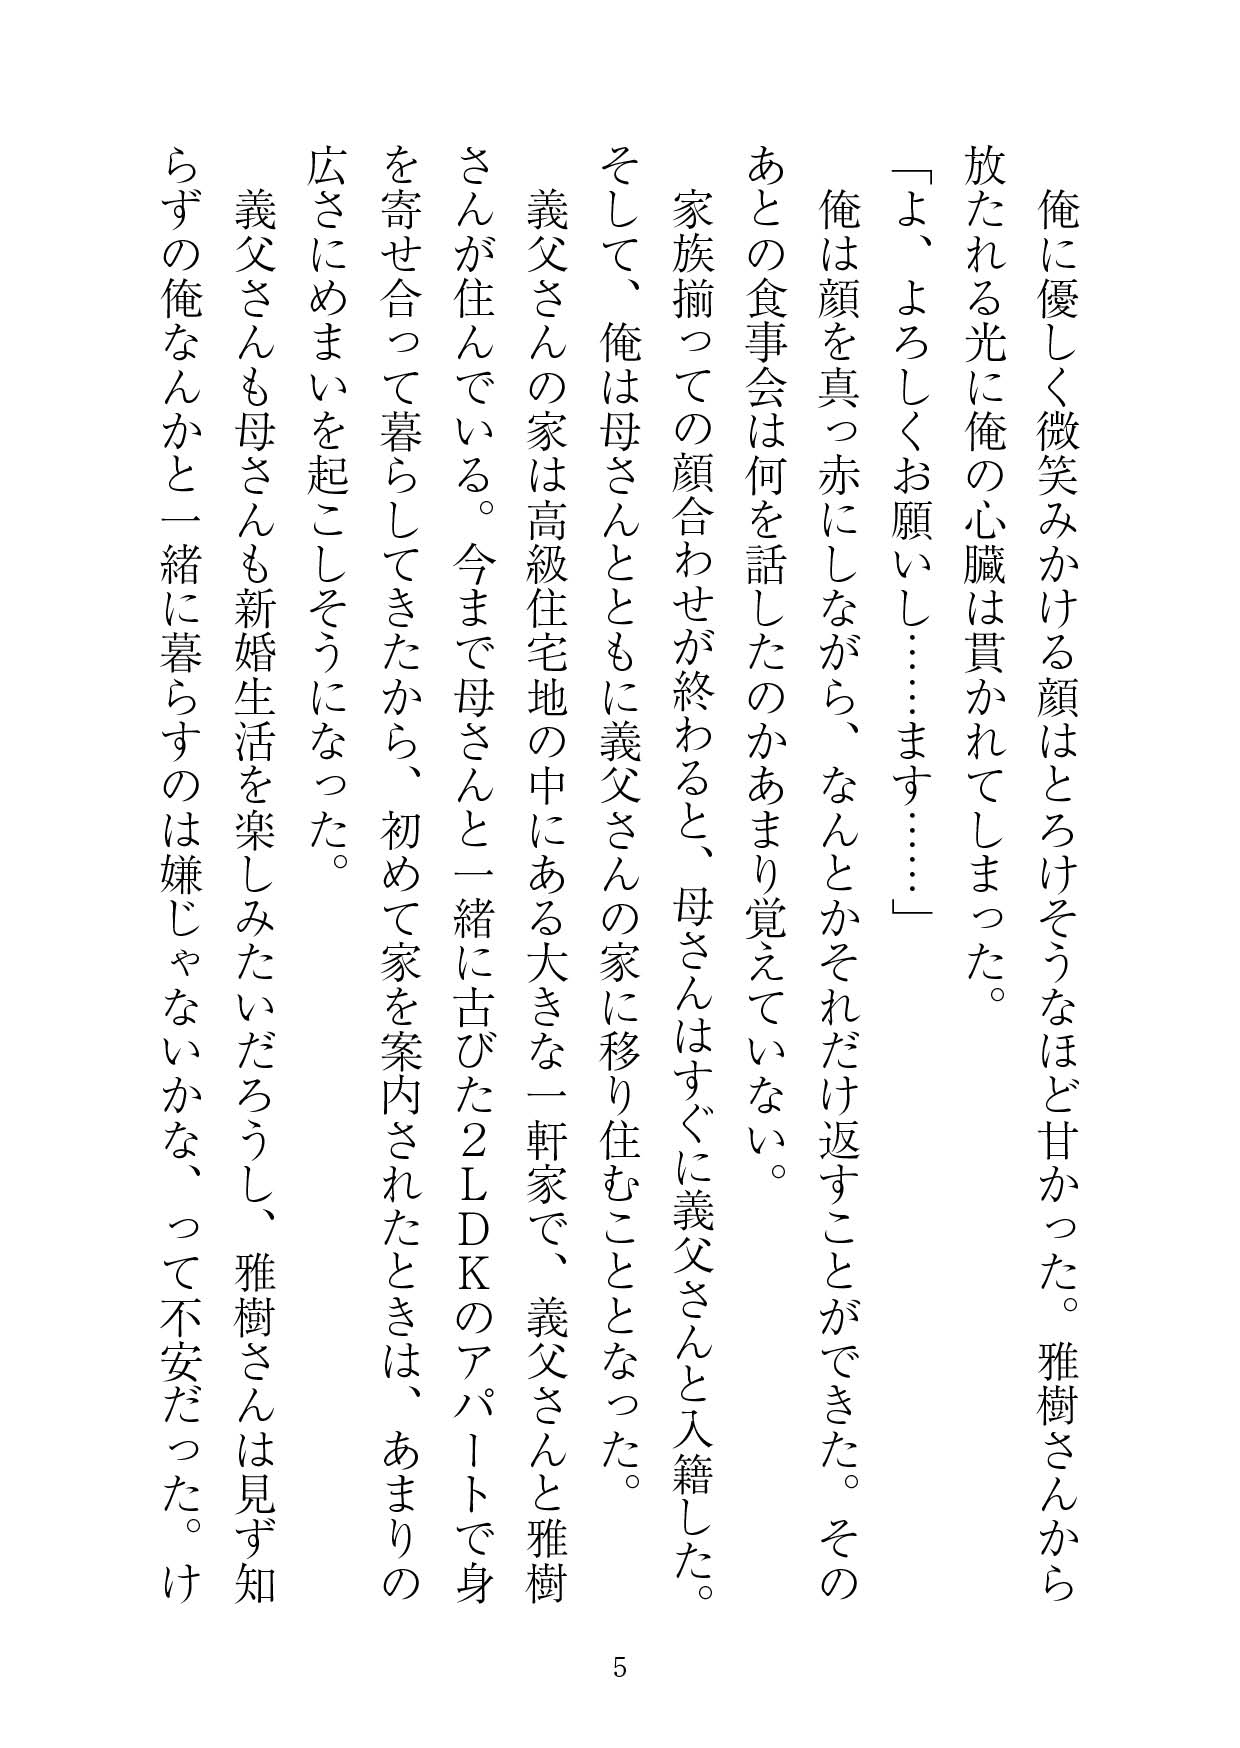 俺に優しく微笑みかける顔はとろけそうなほど甘かった。雅樹さんから
放たれる光に俺の心臓は貫かれてしまった。
「よ、よろしくお願いし……ます……」
　俺は顔を真っ赤にしながら、なんとかそれだけ返すことができた。その
あとの食事会は何を話したのかあまり覚えていない。
　家族揃っての顔合わせが終わると、母さんはすぐに義父さんと入籍した。
そして、俺は母さんとともに義父さんの家に移り住むこととなった。
　義父さんの家は高級住宅地の中にある大きな一軒家で、義父さんと雅樹
さんが住んでいる。今まで母さんと一緒に古びた２ＬＤＫのアパートで身
を寄せ合って暮らしてきたから、初めて家を案内されたときは、あまりの
広さにめまいを起こしそうになった。
　義父さんも母さんも新婚生活を楽しみたいだろうし、雅樹さんは見ず知
らずの俺なんかと一緒に暮らすのは嫌じゃないかな、って不安だった。け
5